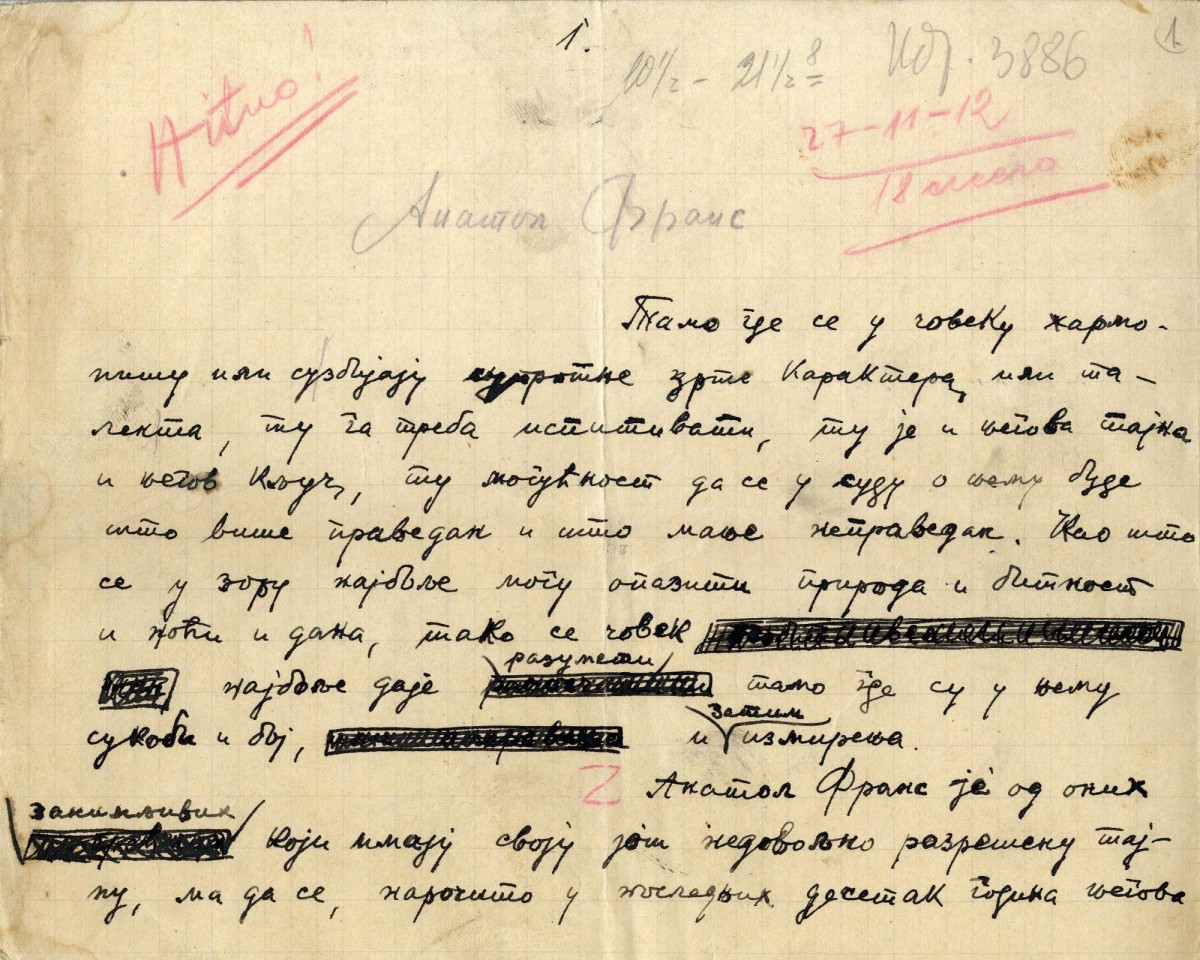 1.
10½ - 21½ 8
Иб. 3886
1
Hitno!
27-11-12
18
Анатол Франс
Тамо где се у човеку хармо-
нишу или сузбијају супротне црте карактера, или та-
лекта, ту га треба испитивати, ту је и његова тајна
и његов кључ, ту могућност да се у суду о њему буде
што више праведан и што мање неправедан. Као што
се у зору најбоље могу опазити природа и битност
и ноћи и дана, тако се човек
разумети
најбоље даје тамо где су у њему
затим
сукоби и бој, и измирења.
Z Анатол Франс је од оних
занимљивих
који имају своју још недовољно разрешену тај-
ну, ма да се, нарочито у последњих десетак година његова